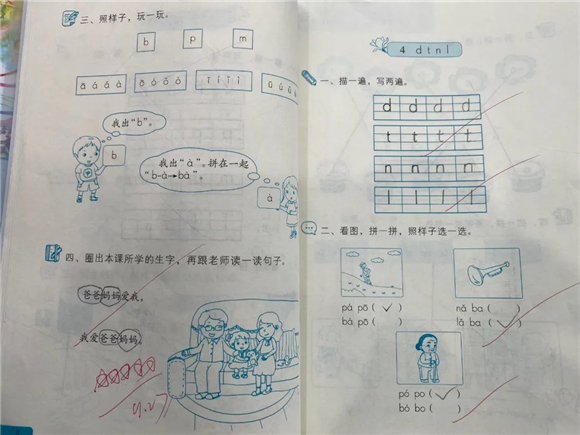 三、照样子，玩一玩。
b p m
ā á ǎ à ō ó ǒ ò ī í ǐ ì ū ú ǔ
我出“b”。
b
我出“à”。拼在一起
“b-à→bà”。
à
四、圈出本课所学的生字，再跟老师读一读句子。
爸爸妈妈爱我，
我爱爸爸妈妈。
4.27
4 d t n l
一、描一遍，写两遍。
d d d d
t t t t
n n n n
l l l l
二、看图，拼一拼，照样子选一选。
pá pō ( ✓ )
bà pō ( )
nǎ ba ( )
lǎ ba ( ✓ )
pó po ( ✓ )
bó bo ( )